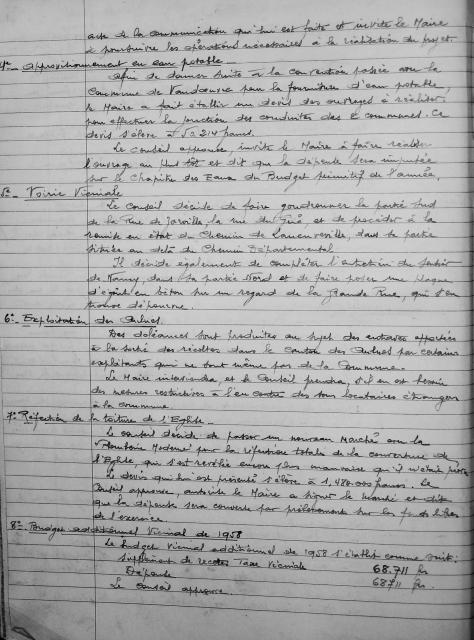 acte de la communication qui lui est faite et invite le Maire
à poursuivre les opérations nécessaires à la réalisation du projet.
4°- Approvisionnement en eau potable
Afin de donner suite à la convention passée avec la
Commune de Vandoeuvre pour la fourniture d'eau potable,
le Maire a fait établir un devis des ouvrages à réaliser
pour effectuer la jonction des conduites des 2 communes. Ce
devis s'élève à francs.
Le Conseil approuve, invite le Maire à faire réaliser
l'ouvrage au plus tôt et dit que la dépense sera imputée
sur le Chapitre des Eaux du Budget primitif de l'année.
5°- Voirie Vicinale
Le Conseil décide de faire goudronner la partie Sud
de la Rue de Jarville, la rue du Gué et de procéder à la
remise en état du Chemin de dans la partie
située au delà du Chemin Départemental.
Il décide également de compléter l'réfection du
de Nancy, dans sa partie Nord et de faire poser une plaque
d'égout en béton sur un regard de la Grande Rue, qui s'en
trouve dépourvu.
6°- Exploitation des
Des doléances sont produites au sujet des entraves apportées
à la sortie des récoltes dans le Canton des par certains
exploitants qui ne sont même pas de la Commune.
Le Maire interviendra, et le Conseil prendra, s'il en est besoin
des mesures restrictives à l'encontre des sous locataires étrangers
à la commune.
7°- Réfection de la toiture de l'Eglise
Le Conseil décide de passer un nouveau Marché avec la
"Plomberie Moderne" pour la réfection totale de la couverture de
l'Eglise, qui s'est révélée encore plus mauvaise qu'il n'était prévu
Le devis qui lui est présenté s'élève à 1.480.000 francs. Le
Conseil approuve, autorise le Maire à signer le marché et dit
que la dépense sera couverte par prélèvement sur les fonds libres
de l'exercice.
8°- Budget additionnel Vicinal de 1958
Le budget Vicinal additionnel de 1958 s'établit comme suit:
Supplément de recettes Taxe Vicinale 68.711 frs
Dépense 68711 frs.
Le Conseil approuve.